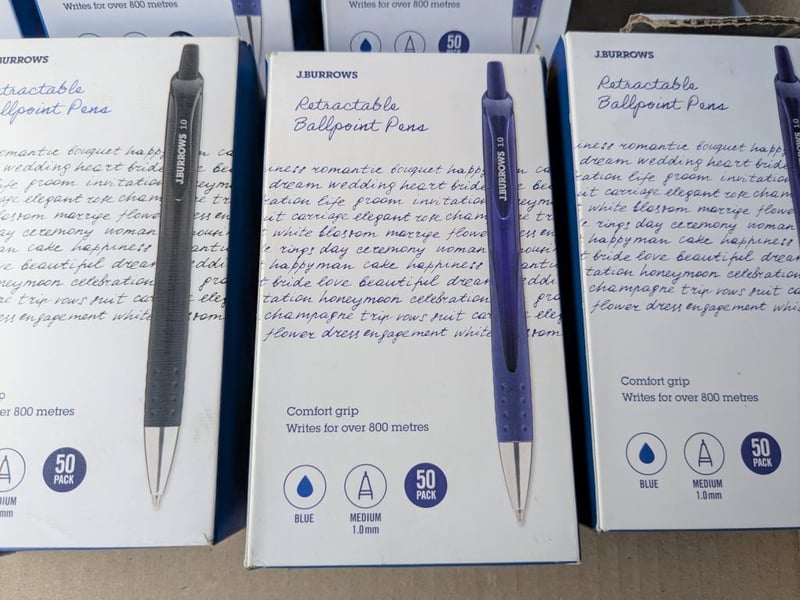 Writes for over 800 metres
Writes for over 800 metres
50
J.BURROWS
Retractable
Ballpoint Pens
happ
wedding heart bride
life groom invitation
elegant
marrige flowe
ceremony woman
cake happiness
beautiful dream
honeymoon celebration
trip vows suit
engagement white
J.BURROWS 1.0
over 800 metres
MEDIUM
mm
50
PACK
J.BURROWS
Retractable
Ballpoint Pens
romantic bouquet happ
dream wedding heart bride
life groom invitation
carriage elegant
white blossom marrige flowe
rings day ceremony woman
happyman cake happiness
bride love beautiful dream
honeymoon celebration
champagne trip vows suit
flower dress engagement white
J.BURROWS 1.0
Comfort grip
Writes for over 800 metres
BLUE
MEDIUM
1.0mm
50
PACK
J.BURROWS
Retractable
Ballpoint Pens
romantic bouquet happ
dream wedding heart bride
life groom invitation
carriage elegant
white blossom marrige flowe
rings day ceremony woman
happyman cake happiness
bride love beautiful dream
honeymoon celebration
champagne trip vows suit
flower dress engagement white
Comfort grip
Writes for over 800 metres
BLUE
MEDIUM
1.0mm
50
PACK